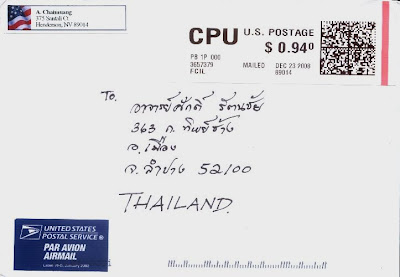 A. Chainatong
375 Santali Ct
Henderson, NV 89014
CPU U.S. POSTAGE
$ 0.940
PB 1P 000
3657379
FCIL
MAILED DEC 23 2008
89014
To.
อาจารย์ศักดิ์ รัตนชัย
363 ถ. ทิพย์ช้าง
อ. เมือง
จ. ลำปาง 52100
THAILAND.
UNITED STATES
POSTAL SERVICE
PAR AVION
AIRMAIL